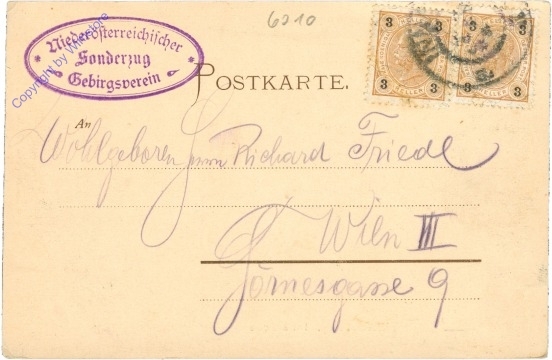 6210
Niederösterreichischer
Sonderzug
Gebirgsverein
Copyright by Wikelore
POSTKARTE.
3 3 3 3
3 3 3 3
An
Wohlgeboren Herrn Richard Friedl
Wien III
Görnesgasse 9